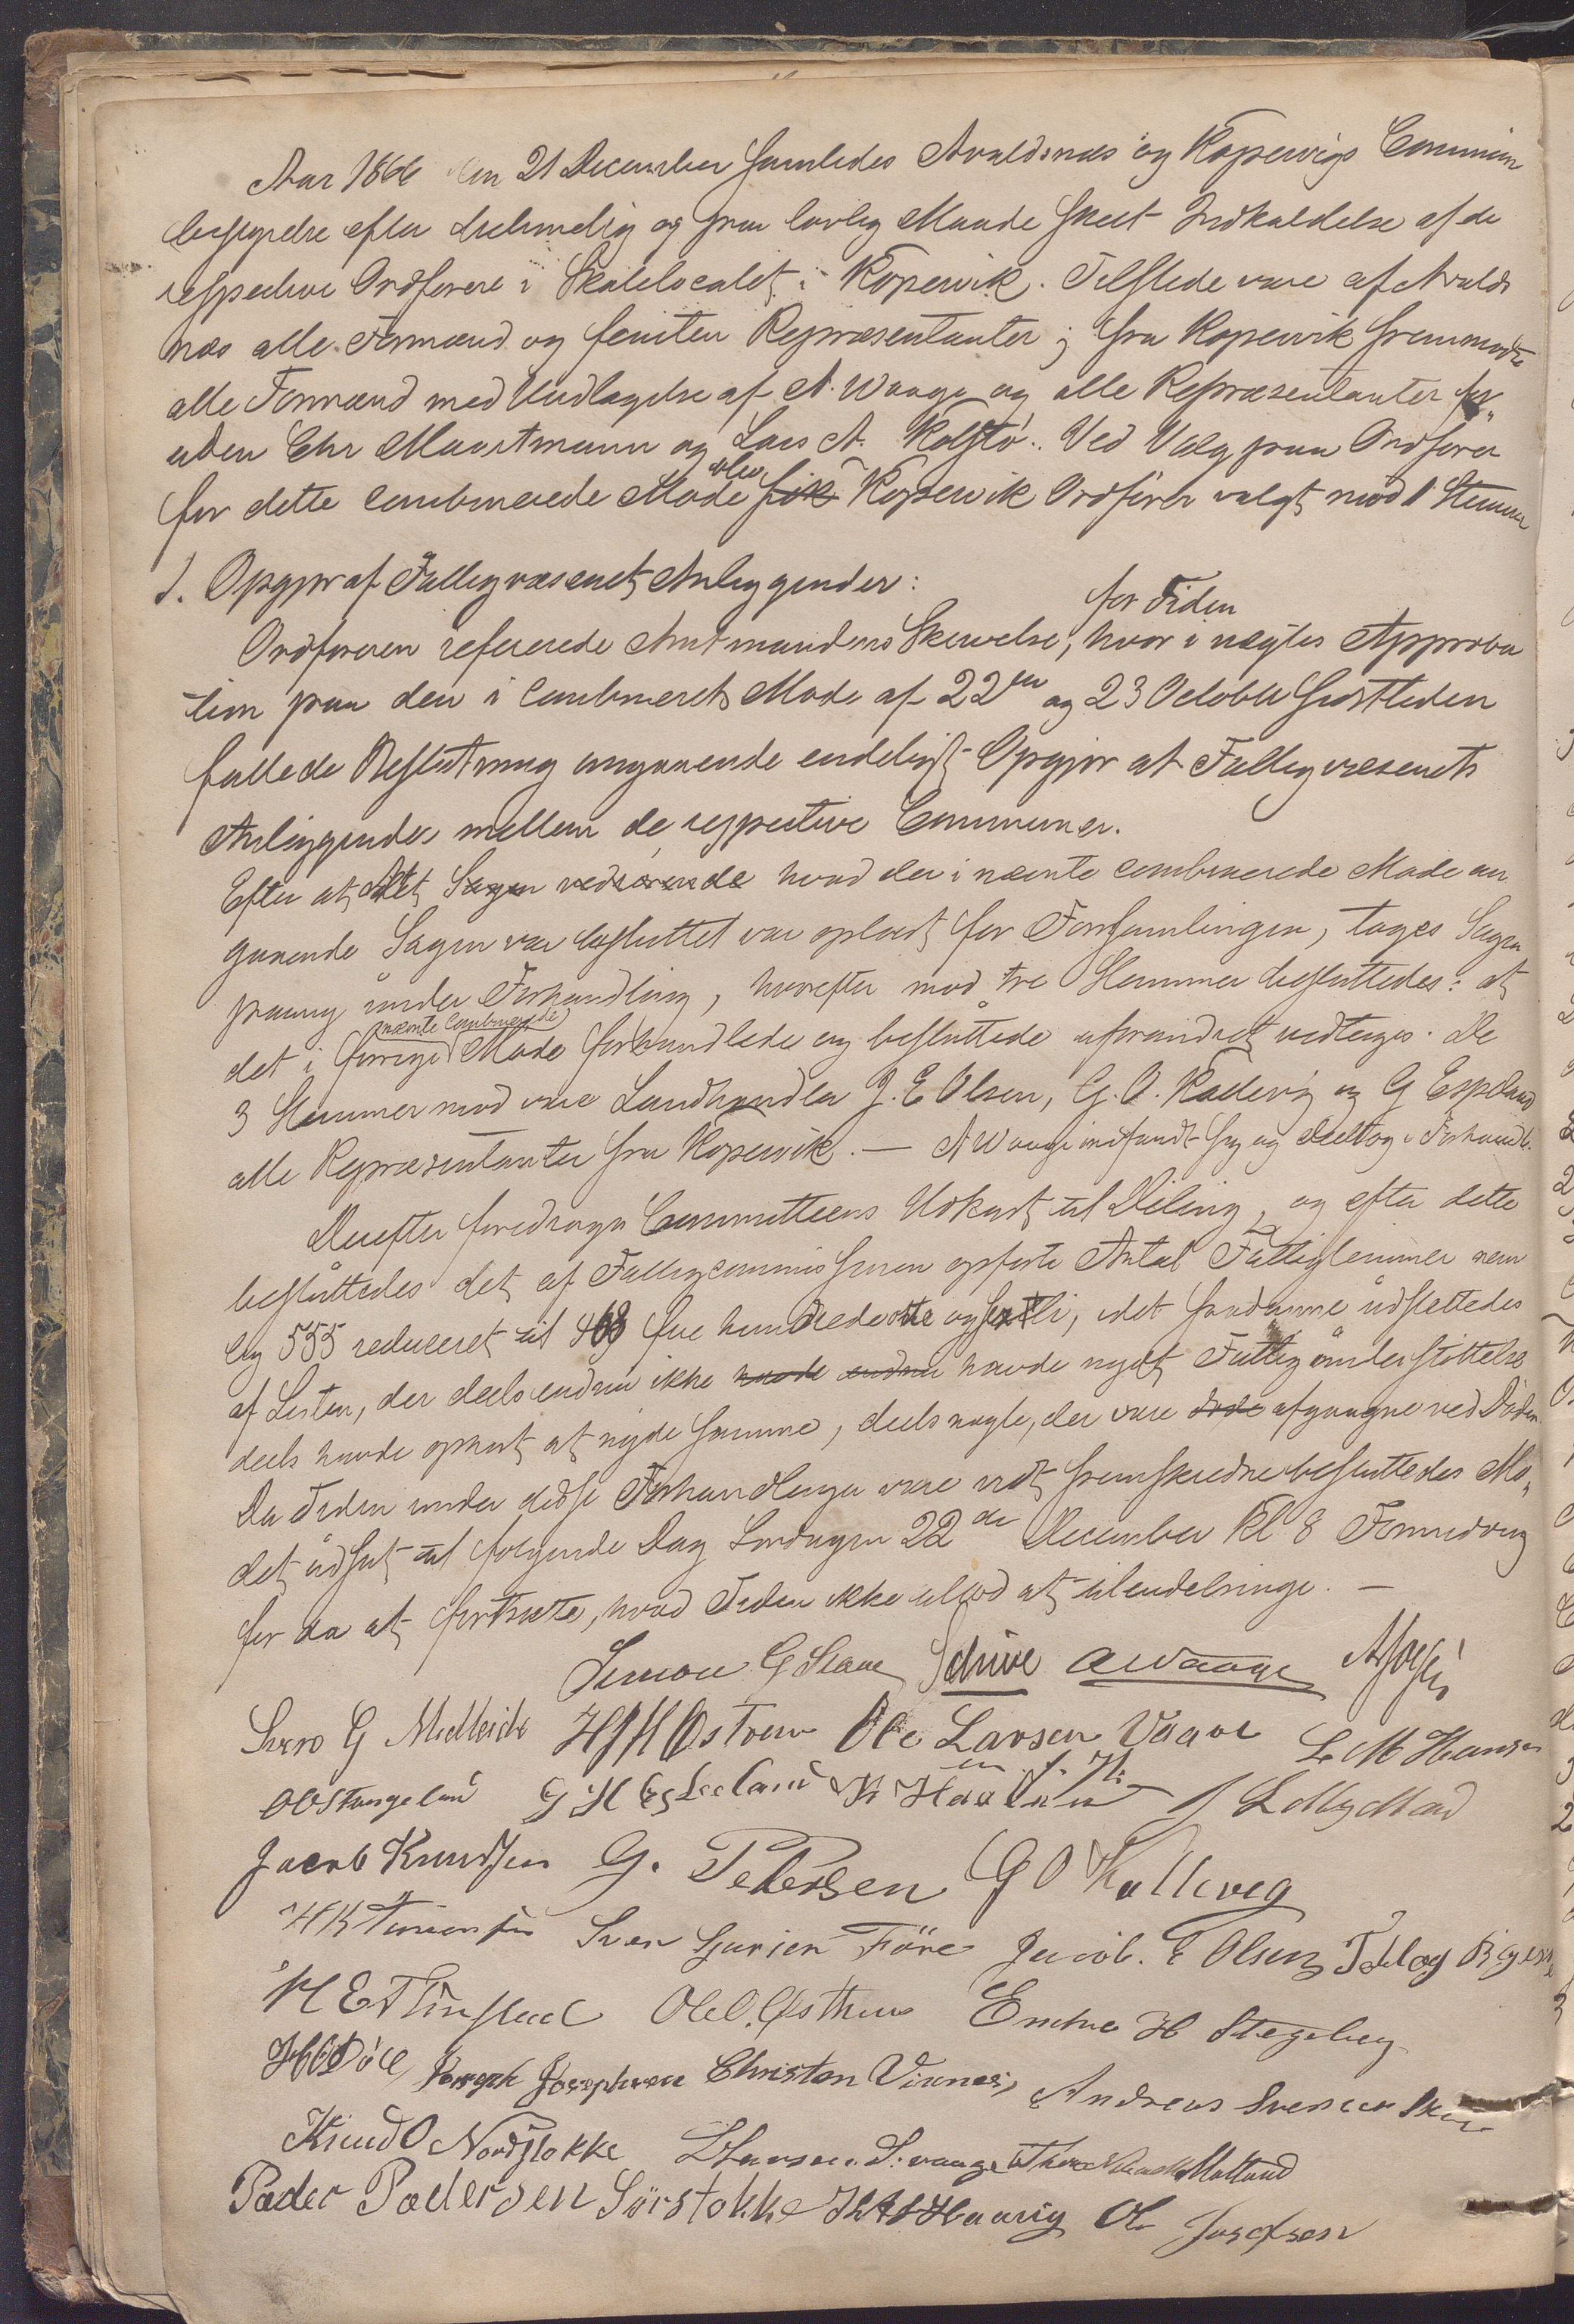 Aar 1866 den 21 December samledes Avaldsnæs og Kopervigs Commun
bestyrelse efter betimelig og paa lovlig Maade skeet Indkaldelse af de
respective Ordførere i Skolelocalet i Kopervik. Tilstede vare af Avalds
næs alle Formænd og femten Repræsentanter; fra Kopervik fremmødte
alle Formænd med Undtagelse af A. Waage og alle Repræsentanter for„
uden Chr Maartmann og Lars A. Kolstø. Ved Valg paa Ordfører
for dette combinerede Møde blev fik Kopervik Ordfører valgt mod 1 Stemme
1. Opgjør af Fattigvæsenets Anliggender:
for Tiden
Ordføreren refererede Amtmandens Skrivelse, hvor i nægtes Approba
tion paa den i combineret Møde af 22de og 23 October sidstleden
fattede Beslutning angaaende endeligt Opgjør at Fattigvæsenets
Anliggender mellem de respective Communer.
Efter at Alt Sagen vedrørende hvad der i nævnte combinerede Møde an
gaaende Sagen var besluttet var oplæst for Forsamlingen, toges Sagen
paany under Forhandling, hvorefter mod tre Stemmer besluttedes: at
nævnte combinerede
det i forrige Møde forhandlede og besluttede uforandret vedtages. De
3 Stemmer mod vare Landhandler J. E Olsen, G. O. Kallevig og G Espeland
alle Repræsentanter fra Kopervik. — A Waage indfandt sig og deeltog i Forhandl.
Derefter foredroges Committeens Udkast til Deling, og efter dette
besluttedes det af Fattigcommissionen opførte Antal Fattiglemmer nem
lig 555 reduceret til 468 fire hundrede otte og sexti, idet saadanne udslettedes
af Listen, der deels endnu ikke havde endnu havde nydt Fattigunderstøttelse
deels havde ophørt at nyde samme, deels nogle, der vare døde afgaagne ved Døden.
Da Tiden under disse Forhandlinger vare vidt fremskreden besluttedes Mø„
det udsat til følgende Dag Lørdagen 22de December Kl 8 Formiddag
for da at fortsætte, hvad Tiden ikke tillod at tilendebringe. —
Simon G Stave Schive A Waage
Sven G Medhoug H H Østrem Ole Larsen Vaage L M Hansen
O O Stangeland G H Espeland J L Mydland
Jacob Knudsen G. Petersen G O Kalleveg
Sven Larsen Føre Jacob. E Olsen Tollag
Ole O. Østhus Endre H Stegeberg
Joseph Josephsen Christen Vinnes, Andreas Svensen
Knud O Nordstokke L Larsen
Pæder Pædersen Sørstokke Ole Josefsen